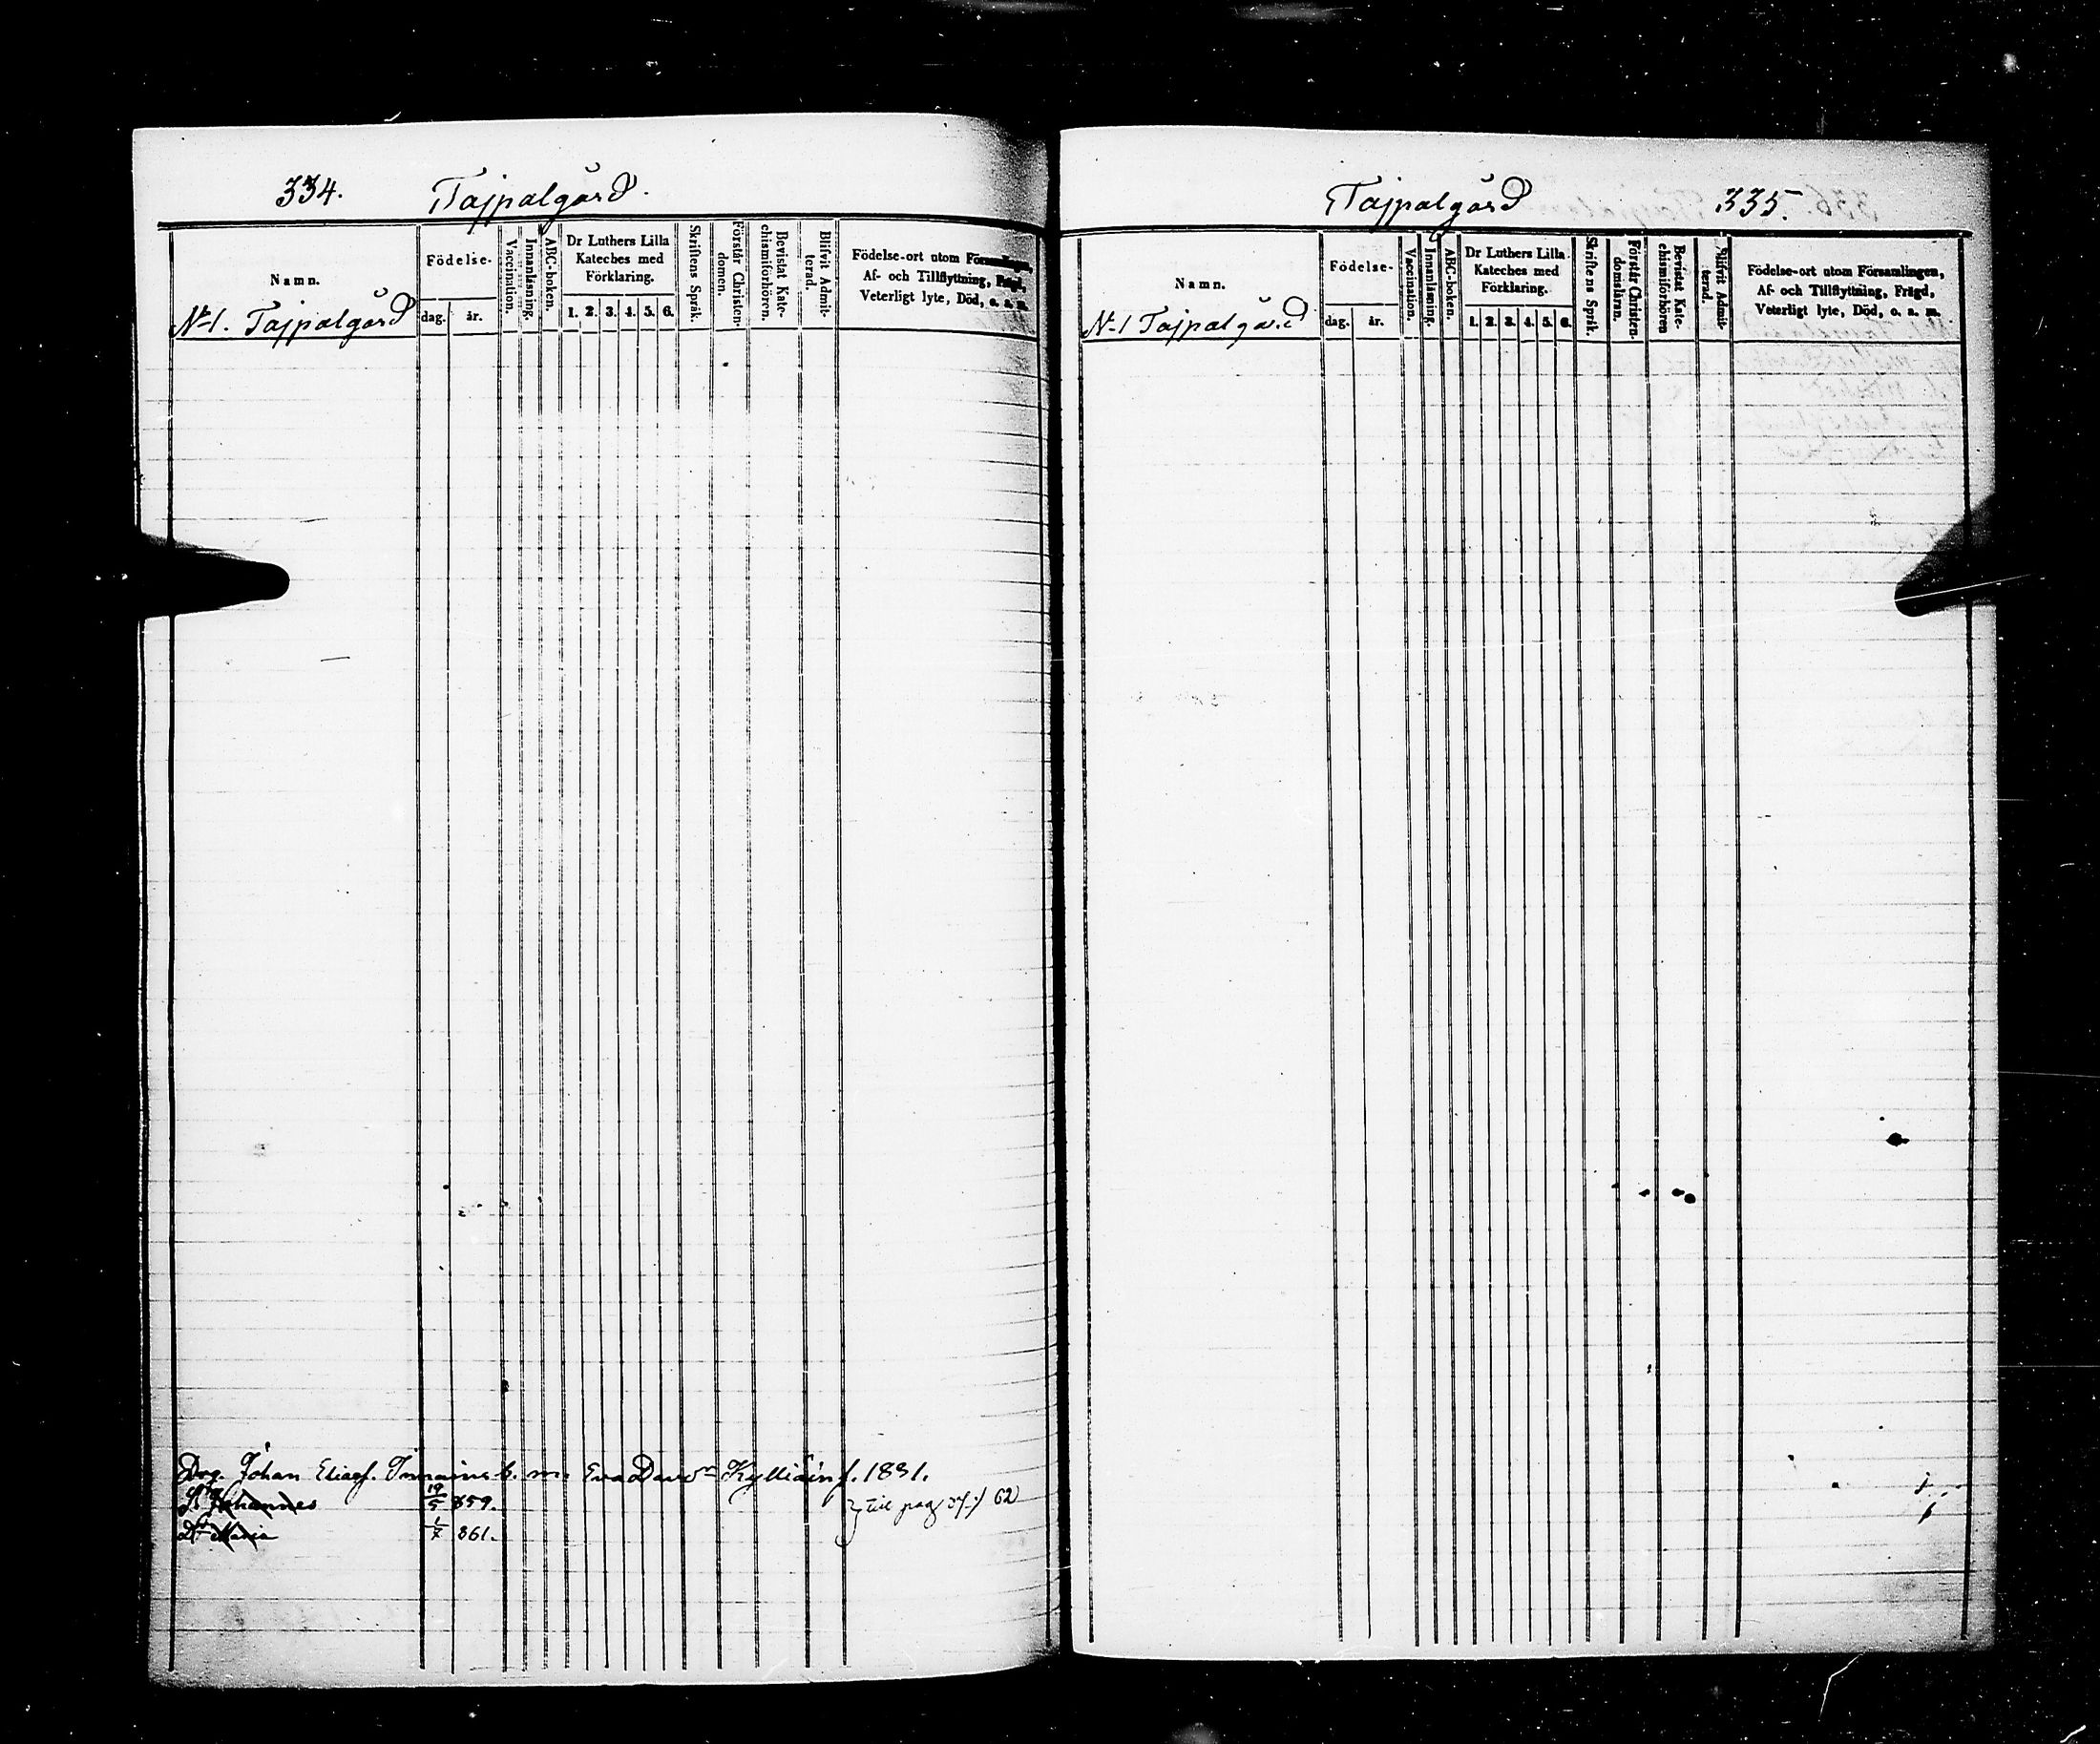 334. Tajpalgård.
Namn.
Födelse-
dag. år.
Vaccination.
Innanläsning.
ABC-boken.
Dr Luthers Lilla
Kateches med
Förklaring.
1. 2. 3. 4. 5. 6.
Skriftens Språk.
Förstår Christen-
domen.
Bevistat Kate-
chismiförhören.
Blifvit Admit-
terad.
Födelse-ort utom Församlingen,
Af- och Tillflyttning, Frägd,
Veterligt lyte, Död, o. a. m.
No 1. Tajpalgård
Drg. Johan Eliass. Immainen b. m. Eva Davdr Kylliäin f. 1831.
S. Johannes 19/5 859. till pag 62
Dr Maria 1/7 861.
Tajpalgård 335.
Namn.
Födelse-
dag. år.
Vaccination.
Innanläsning.
ABC-boken.
Dr Luthers Lilla
Kateches med
Förklaring.
1. 2. 3. 4. 5. 6.
Skriftens Språk.
Förstår Christen-
domsläran.
Bevistat Kate-
chismiförhören
Blifvit Admit-
terad.
Födelse-ort utom Församlingen,
Af- och Tillflyttning, Frägd,
Veterligt lyte, Död, o. a. m.
No 1 Tajpalgård